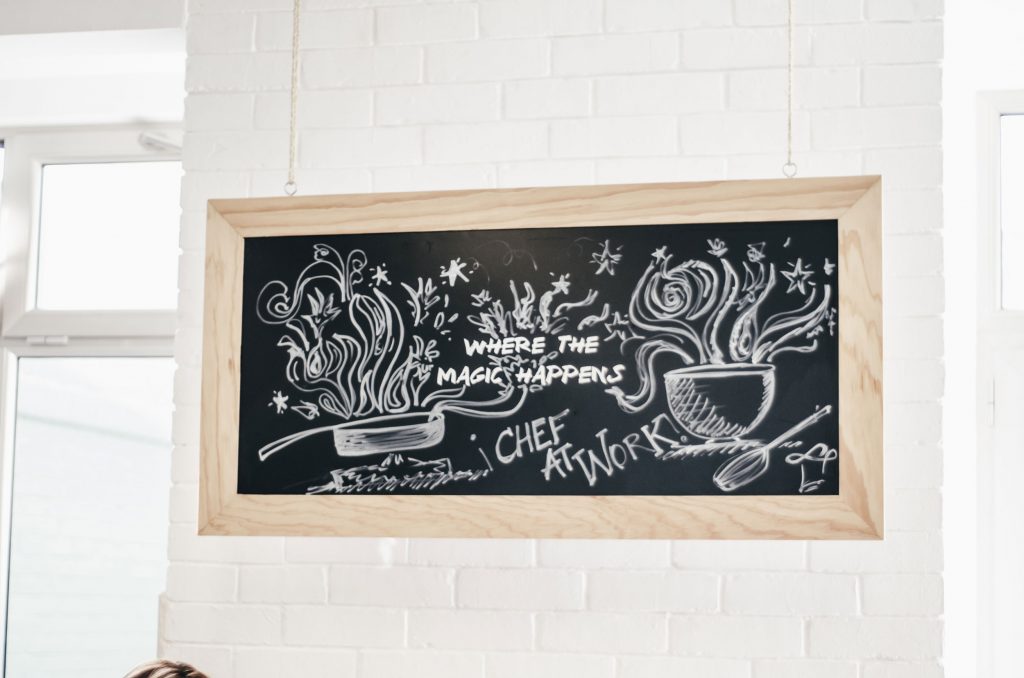 WHERE THE
MAGIC HAPPENS
¡CHEF
AT WORK!